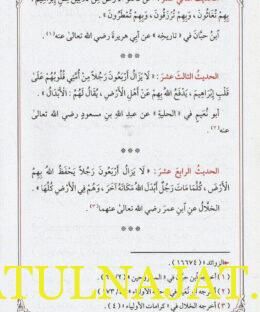 بِهِمْ تُغَاثُونَ، وَبِهِمْ تُرْزَقُونَ، وَبِهِمْ تُمْطَرُونَ» .
ابنُ حِبَّانَ في «تاريخِه» عن أبي هريرةَ رضي الله تعالى عنه(١).
***
الحديثُ الثالثَ عشرَ: «لا يَزَالُ أَرْبَعُونَ رَجُلاً مِنْ أُمَّتِي قُلُوبُهُمْ عَلَى
قَلْبِ إِبْرَاهِيمَ، يَدْفَعُ اللهُ بِهِمْ عَنْ أَهْلِ الأَرْضِ، يُقَالُ لَهُمْ: الأَبْدَالُ» .
أبو نُعَيمٍ في «الحليةِ» عن عبدِ اللهِ بنِ مسعودٍ رضي الله تعالى
عنه(٢).
***
الحديثُ الرابعَ عشرَ: «لا يَزَالُ أَرْبَعُونَ رَجُلاً يَحْفَظُ اللهُ بِهِمُ
الأَرْضَ، كُلَّمَا مَاتَ رَجُلٌ أَبْدَلَ اللهُ مَكَانَهُ آخَرَ، وَهُمْ فِي الأَرْضِ كُلِّهَا» .
الخَلَّالُ عن ابنِ عمرَ رضي الله تعالى عنهما(٣)
***
(١٦٦٧٤) .
(١) أخرجه ابن حبان في
(٢) أخرجه أبو نعيم في
(٣) أخرجه الخلال في «كرامات الأولياء» (٤) .
ATULNAJAT.